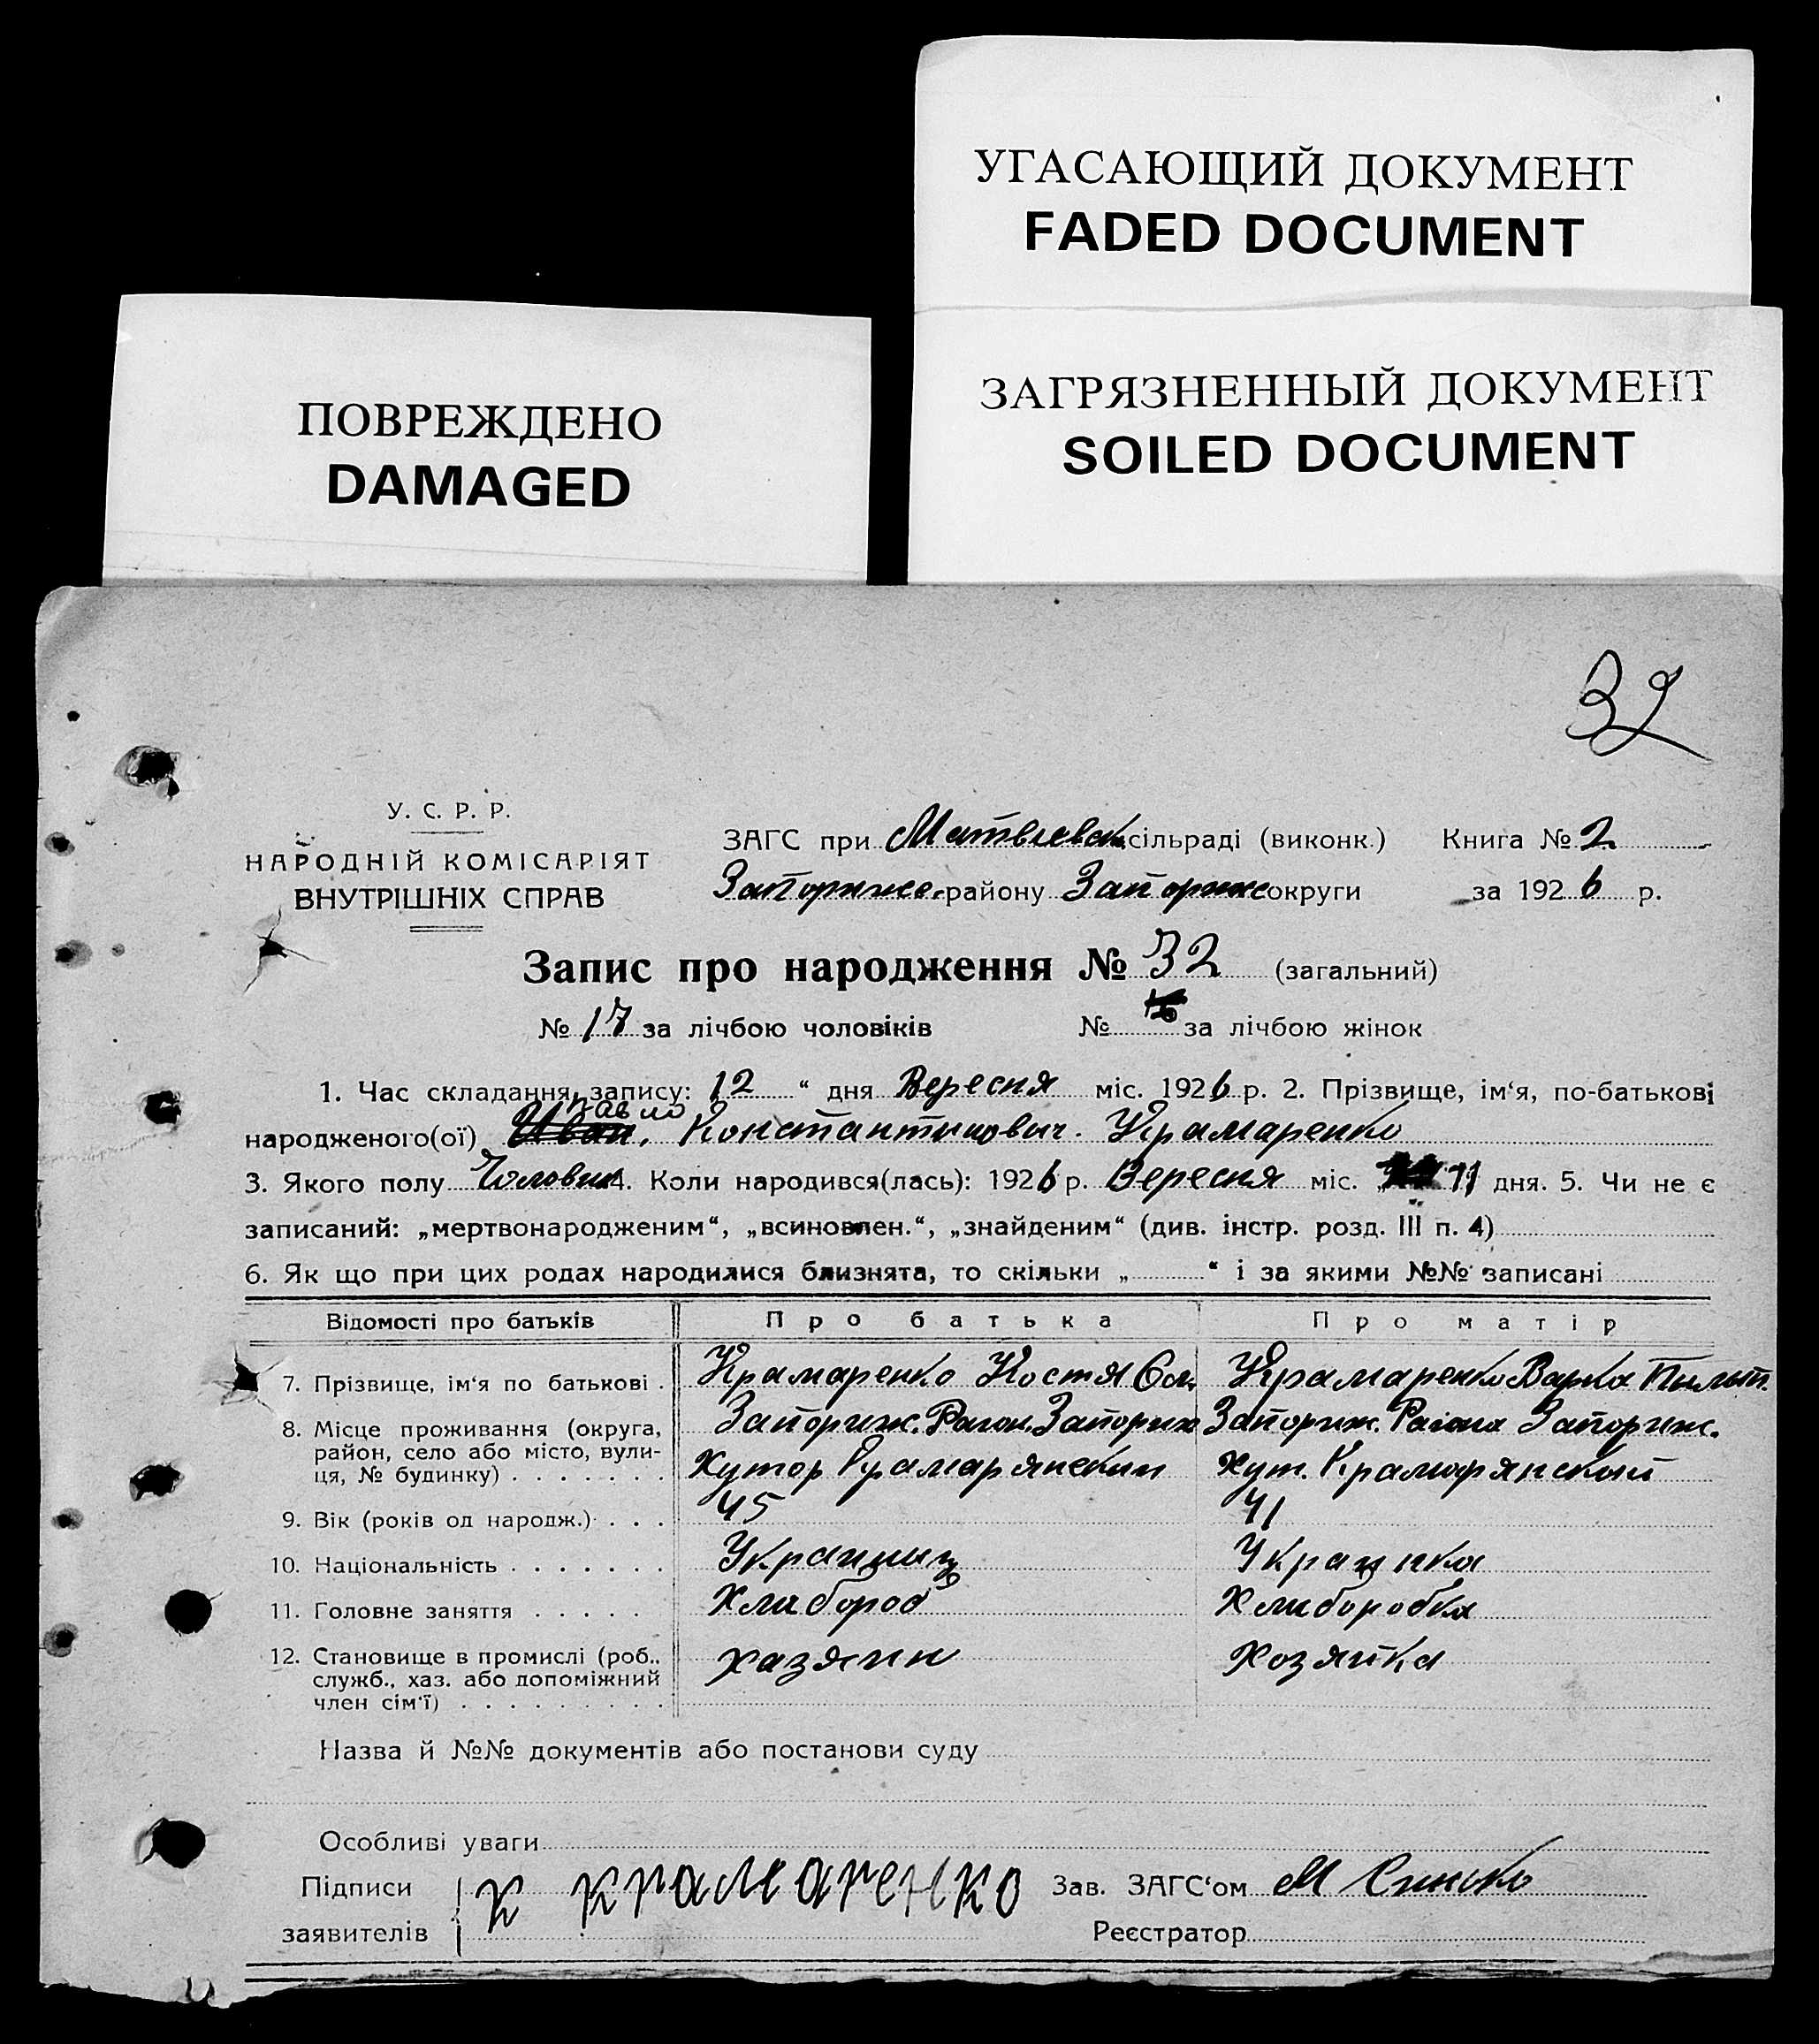 УГАСАЮЩИЙ ДОКУМЕНТ
FADED DOCUMENT
ЗАГРЯЗНЕННЫЙ ДОКУМЕНТ
SOILED DOCUMENT
ПОВРЕЖДЕНО
DAMAGED
32
У. С. Р. Р.
НАРОДНІЙ КОМІСАРІЯТ
ВНУТРІШНІХ СПРАВ
ЗАГС при Матвіевск. сільраді (виконк.) Книга № 2
Запориже. району Запориж округи за 1926 р.
Запис про народження № 32 (загальний)
№ 17 за лічбою чоловіків № за лічбою жінок
1. Час складання запису: 12 “ дня Вересня міс. 1926 р. 2. Прізвище, ім‘я, по-батькові
Павло
народженого(ої) Иван, Константинович. Крамаренко
3. Якого полу Чоловик 4. Коли народився(лась): 1926 р. Вересня міс. „ 11 дня. 5. Чи не є
записаний: „мертвонародженим“, „всиновлен.“, „знайденим“ (див. інстр. розд. III п. 4)
6. Як що при цих родах народилися близнята, то скільки „ “ і за якими №№ записані
Відомості про батьків Про батька Про матір
7. Прізвище, ім‘я по батькові . Крамаренко Костя Крамаренко Варка Пилип.
8. Місце проживання (округа, район, село або місто, вули-ця, № будинку) . . . . . . . Запориж. Раион. Запориж Запориж. Раиона Запориж.
Хутор Крамарянскии Хут. Крамарянский
9. Вік (років од народж.) . . . 45 41
10. Національність . . . . . . . Украиниц Украинка
11. Головне заняття . . . . . Хлибороб Хлиборобка
12. Становище в промислі (роб., служб., хаз. або допоміжний член сім‘ї) . . . . . . . . . хазяин хозяйка
Назва й №№ документів або постанови суду
Особливі уваги
Підписи заявителів { К Крамаренко Зав. ЗАГС‘ом М
Реєстратор